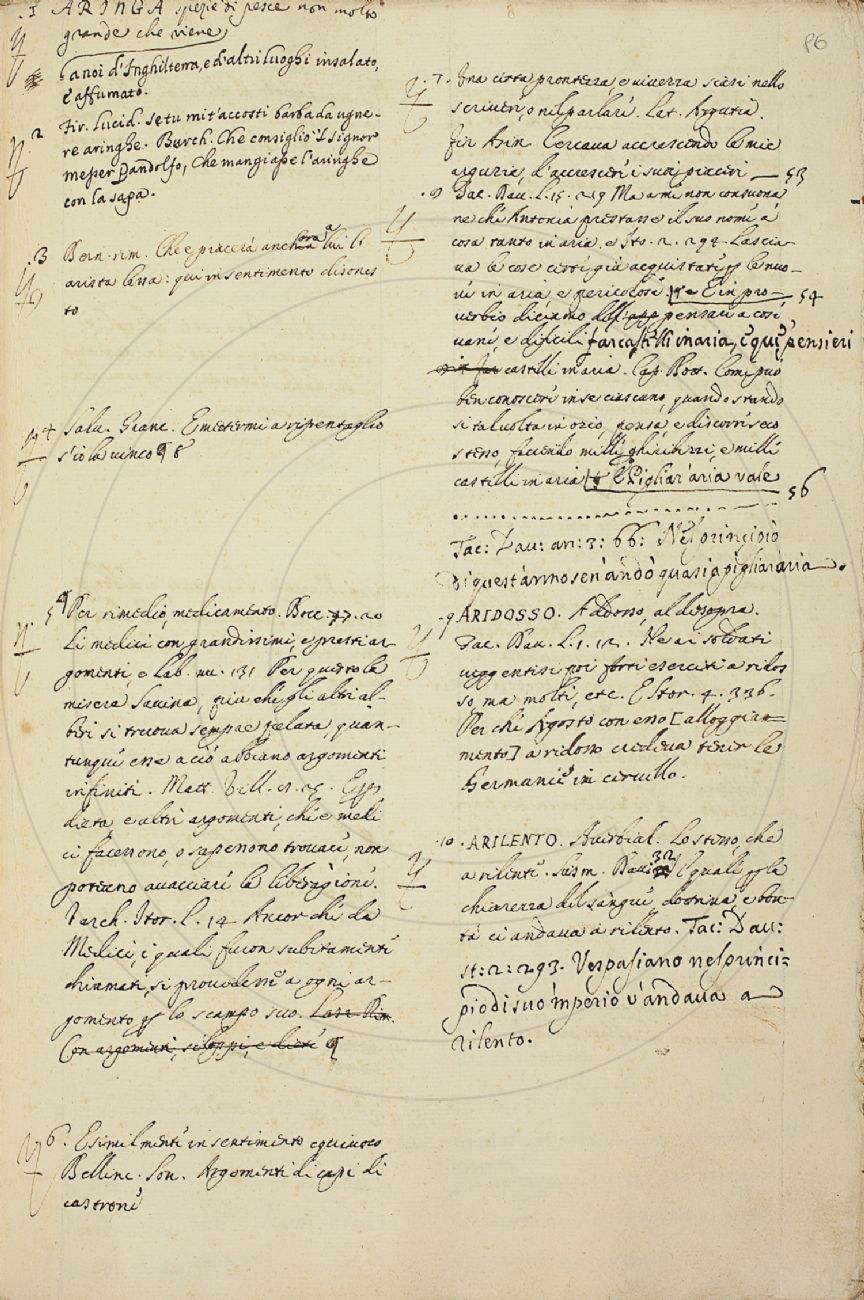 86
.1 ARINGA spezie di pesce non molto
grande che viene
a noi d'Inghilterra, e d'altri luoghi insalato,
e affumato.
2 Fir. Lucid. se tu mi t'accosti barba da ugne-
re aringhe. Burch. Che consiglio 'l signor
messer Pandolfo, Che mangiasse l'aringhe
con la sapa.
.3 Bern. rim. Che e' piacerà ancora a lui l'
arista lessa: qui in sentimento disones
to
4 Salv. Granc. E mettermi a ripentaglio
s'io la vinco
5 Per rimedio, medicamento. Bocc. 20
Li medici con grandissimi, e presti ar-
gomenti, e Lab. nu. 131 Per questo la
misera Saccina, più che gli altri al-
beri si truova sempre pelata, quan-
tunque esse a ciò abbiano argomenti
infiniti. Matt. Vill.
dieta, e altri argomenti, che e medi
ci facessono, o sapessono trovare, non
poteano avacciare la liberagione.
Varch. Stor. l. 14 Ancor che da
Medici, i quali furon subitamente
chiamati, si provvedesse a ogni ar-
gomento per lo scampo suo. Lasc. Rim.
Con argomenti, siloppi, e diete
6. E similmente in sentimento equivoco
Bellinc. son. Argomenti di capi di
castrone
.7. Una certa prontezza, e vivezza sia si nello
scrivere, o nel parlare. Lat. Argutia.
Fir. Asin. Cercava accrescendo le mie
arguzie, d'accrescere i suoi piaceri — 53
Tac. Dav. l. 15. 219 Ma a mi non consuona
ne che Antonia prestasse il suo nome a
cosa tanto in aria. e Sto. 2. 294. Lascia-
va le cose certe già acquistate per le nuo-
ve in aria, e pericolose E in pro- 54
verbio diciamo pensare a cose
vane, e dificili far castelli in aria, e qui pensieri
castelli in aria. Cap. Bott. Come può
ben conoscere in se ciascuno, quando stando
si talvolta in ozio, pensa, e discorre seco
stesso, facendo mille ghiribizzi, e mille
castelli in aria E Pigliar'aria vale 56
Tac: Dav: an: 3: 66: Nel principio
di quest'anno sen'andò quasi a pigliar aria.
.9 ARIDOSSO. Addosso, al disopra.
Tac. Dav. l. 1. 12. Ne ai soldati
veggentisi poi forti eserciti a ridos
so, ma molti, etc. E Stor. 4. 336.
Perche Agosto con esso [alloggia-
mento] a ridosso credeva tenir le
Germanie in cervello.
.10. ARILENTO. Avverbial. Lo stesso, che
a rilente. Dav. 32 E quali per la
chiarezza del sangue dottrina, e bon-
tà ci andava a rilento. Tac: Dav:
st: 2: 293. Vespasiano nel princi=
pio di suo 'mperio v'andava a
rilento.